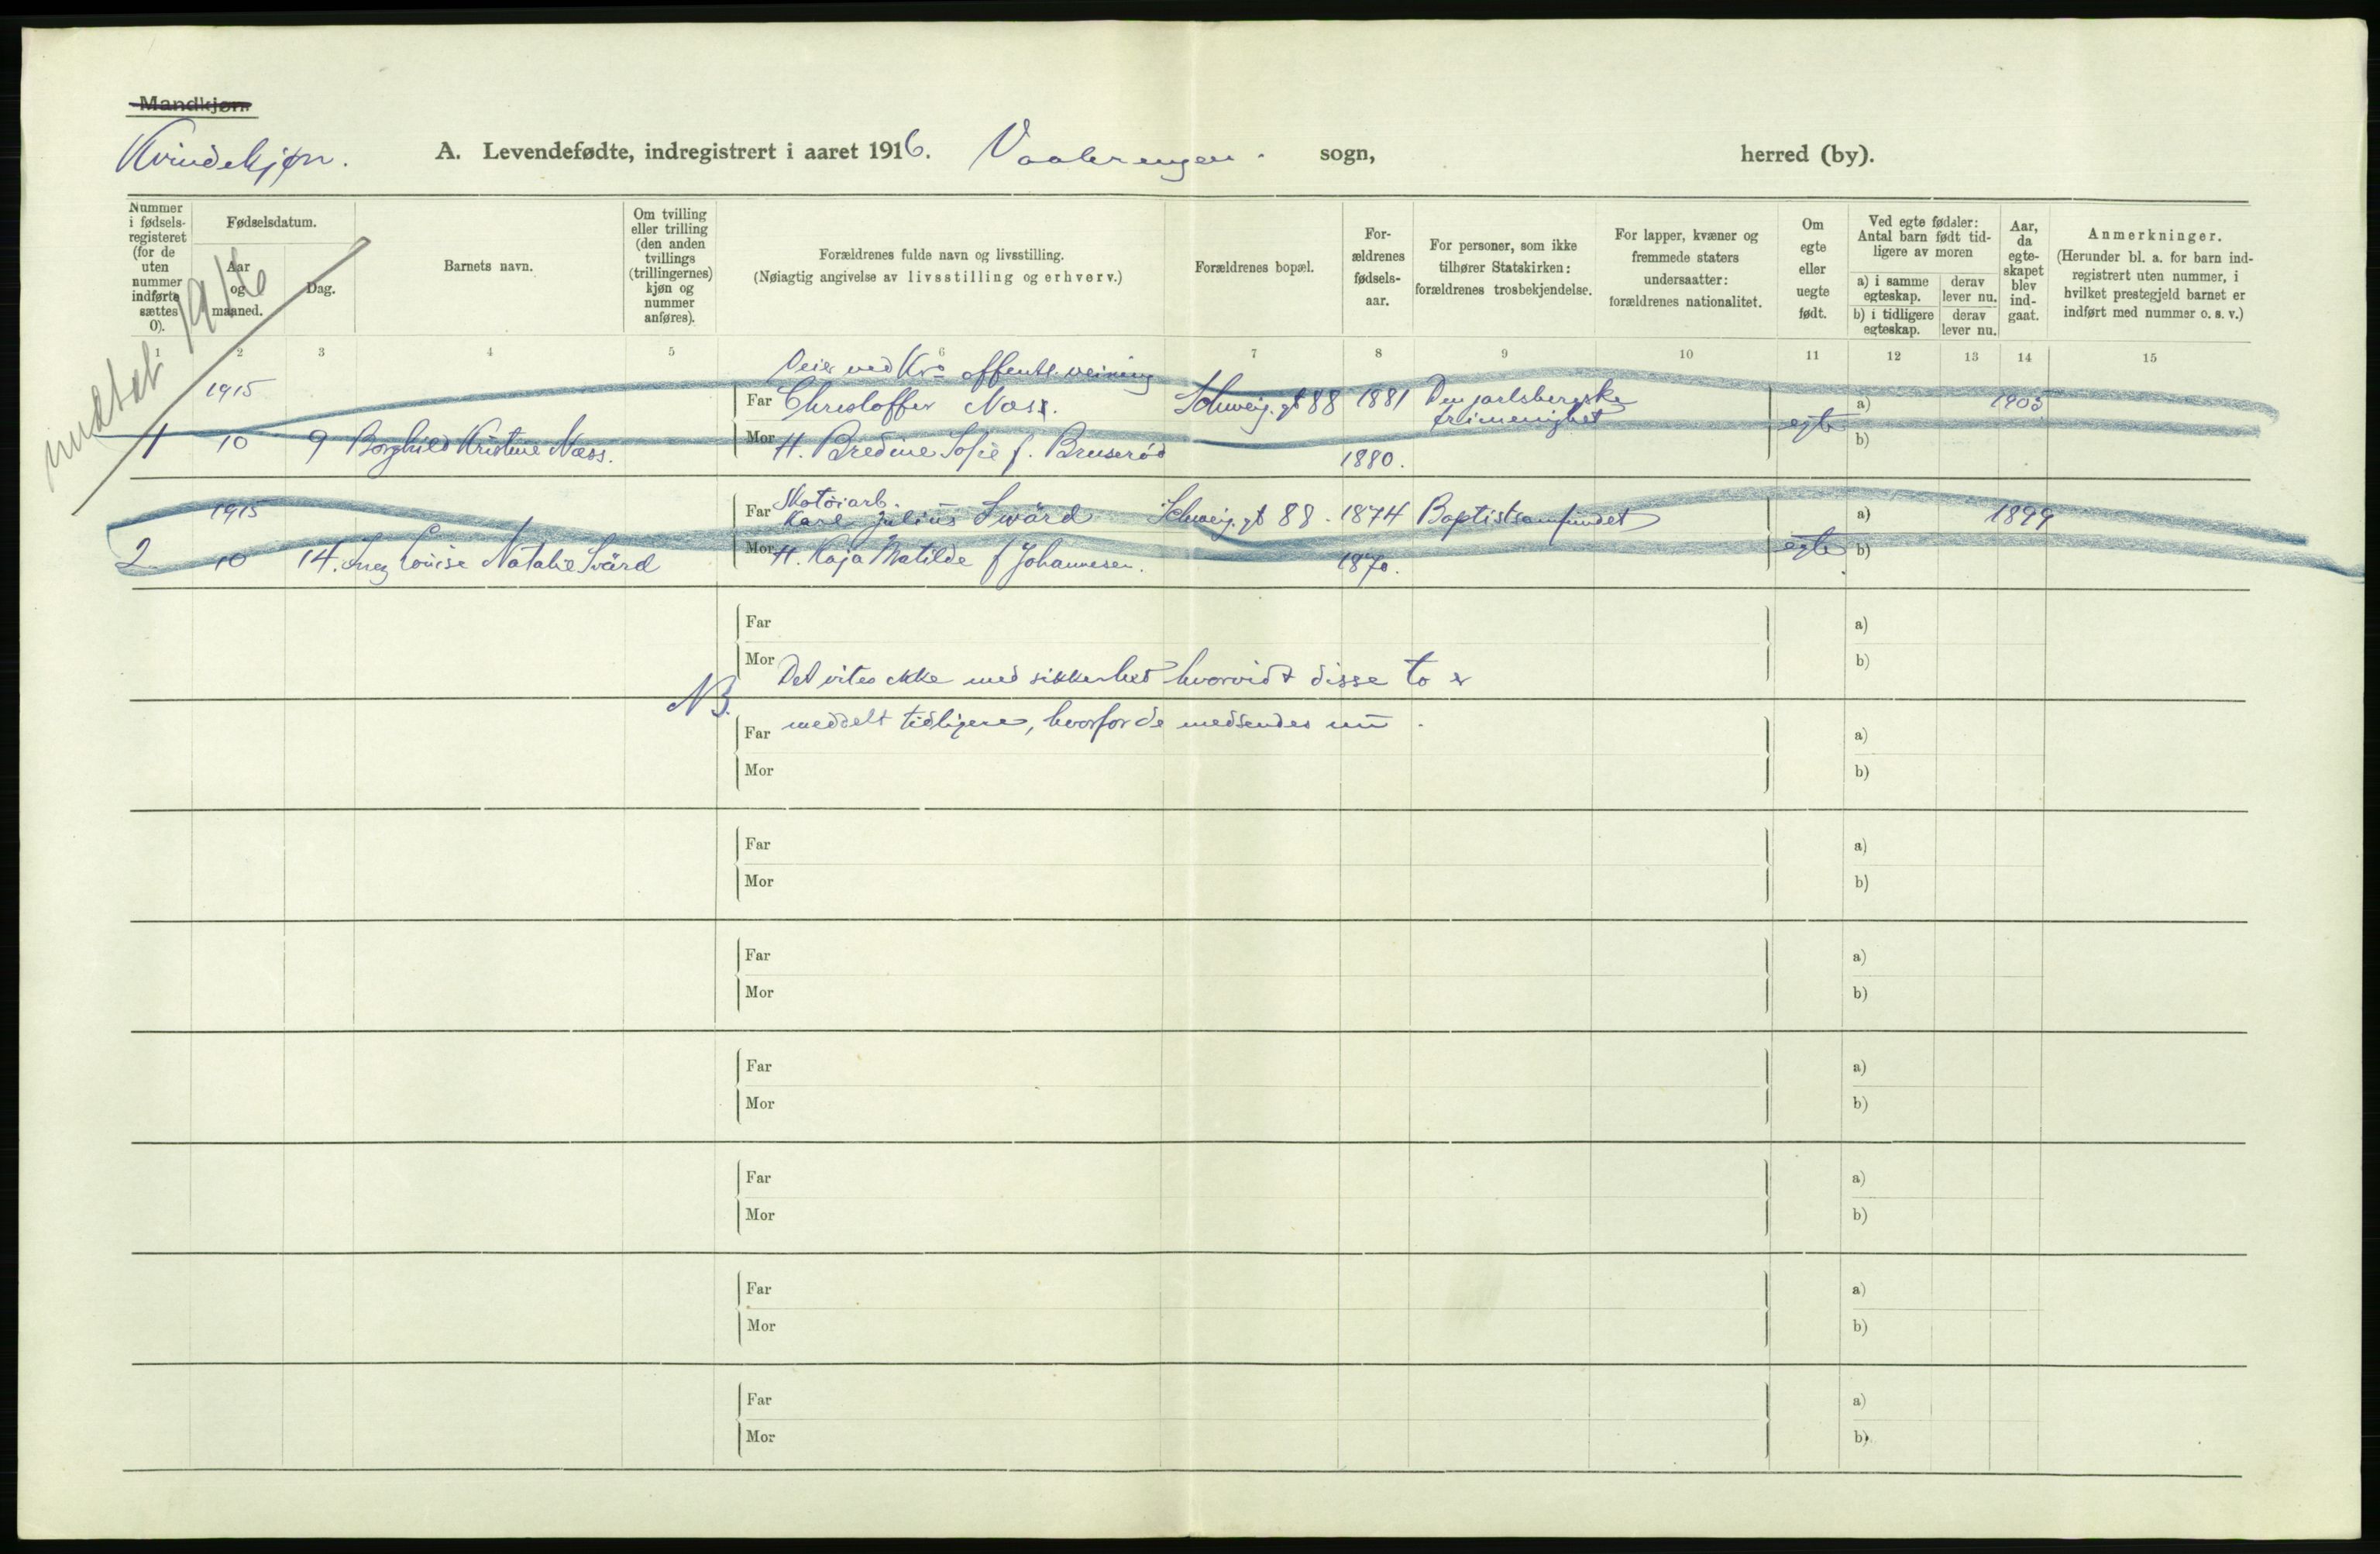 Mandkjøn
Kvindekjøn.
A. Levendefødte, indregistrert i aaret 1916. Vaalerengen. sogn, herred (by).
Nummer i fødselsregisteret (for de uten nummer indførte sættes 0).
Fødselsdatum.
Aar og maaned.
Dag.
Barnets navn.
Om tvilling eller trilling (den anden tvillings (trillingernes) kjøn og nummer anføres).
Forældrenes fulde navn og livsstilling.
(Nøiagtig angivelse av livsstilling og erhverv.)
Forældrenes bopæl.
Forældrenes fødselsaar.
For personer, som ikke tilhører Statskirken: forældrenes trosbekjendelse.
For lapper, kvæner og fremmede staters undersaatter: forældrenes nationalitet.
Om egte eller uegte født.
Ved egte fødsler: Antal barn født tidligere av moren
a) i samme egteskap. derav lever nu.
b) i tidligere egteskap. derav lever nu.
Aar, da egteskapet blev indgaat.
Anmerkninger.
(Herunder bl. a. for barn indregistrert uten nummer, i hvilket prestegjeld barnet er indført med nummer o. s. v.)
1 2 3 4 5 6 7 8 9 10 11 12 13 14 15
1916
Veier ved Kra offentl. veining
1915 Far Christoffer Næss. Schweig. gt 88 1881 Den jarlsbergske frimenighet a) 1905
1 10 9 Borghild Kristine Næss. Mor H. Bredine Sofie f. Bruserød 1880. egte b)
Skotøiarb.
1915 Far Karl Julius Swärd Schweig. gt 88. 1874 Baptistsamfundet a) 1899
2 10 14. Inez Louise Natalie Svärd Mor H. Kaja Matilde f Johannesen. 1870. egte b)
Far a)
Mor Det vites ikke med sikkerhet hvorvidt disse to er b)
NB.
Far meddelt tidligere, hvorfor de medsendes nu. a)
Mor b)
Far a)
Mor b)
Far a)
Mor b)
Far a)
Mor b)
Far a)
Mor b)
Far a)
Mor b)
Far a)
Mor b)